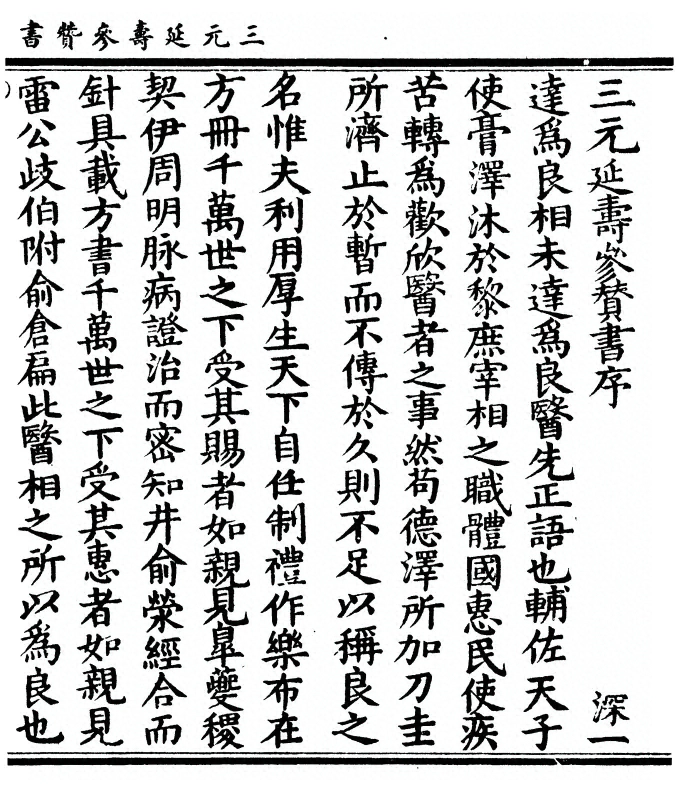 三元延壽參贊書
三元延壽參贊書序
深一
達爲良相未達爲良醫先正語也輔佐天子
使膏澤沐於黎庶宰相之職體國惠民使疾
苦轉爲歡欣醫者之事然苟德澤所加刀圭
所濟止於暫而不傳於久則不足以稱良之
名惟夫利用厚生天下自任制禮作樂布在
方冊千萬世之下受其賜者如親見皐夔稷
契伊周明脉病證治而密知井俞滎經合而
針具載方書千萬世之下受其惠者如親見
雷公歧伯附俞倉扁此醫相之所以爲良也